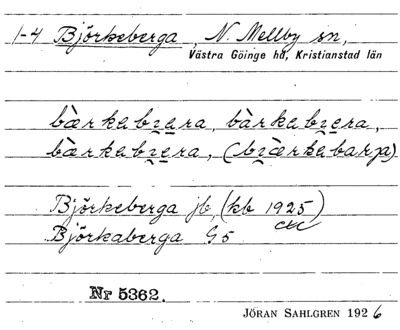 1-4 Björkeberga, N. Mellby sn,
Västra Göinge hd, Kristianstad län
bærkabɿæra, bàrkabɿera,
bærkabɿera, (bɿærkabarja)
Björkeberga jb, (kb 1925)
Björkaberga G5
Nr 5362.
JÖRAN SAHLGREN 1926